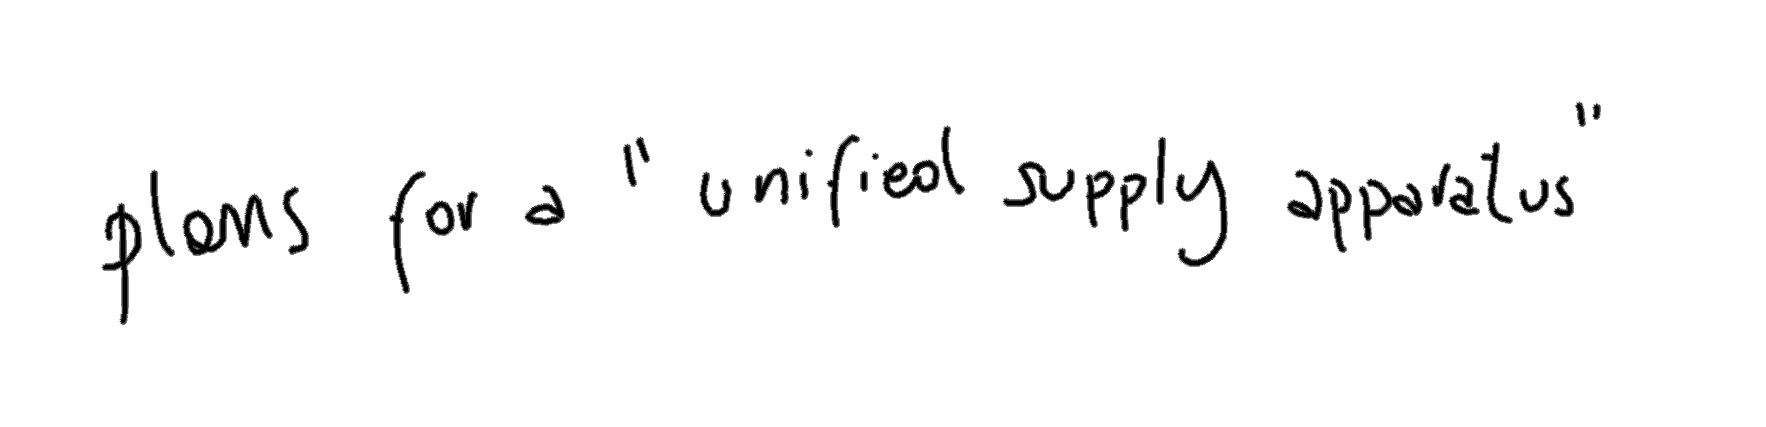 plans for a "unified supply apparatus"